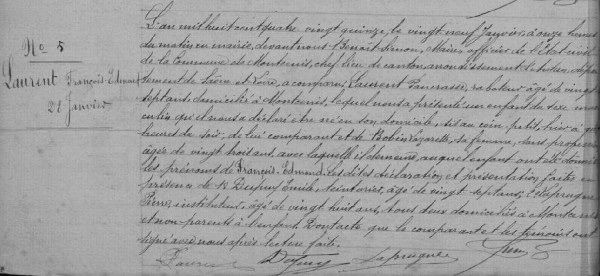 No 5
Laurent François Edmond
28 Janvier
L'an mil huit cent quatre vingt quinze, le vingt neuf Janvier, à onze heures
du matin en mairie, devant nous Benoît Simon, Maire, officier de l'état civil
de la Commune de Montcenis, chef lieu de canton, arrondissement d'Autun, dépar-
tement de Saône et Loire, a comparu Laurent raboteur âgé de vingt
sept ans, domicilié à Montcenis, lequel nous a présenté un enfant du sexe mas-
culin qu'il nous a déclaré être né en son domicile, hier à
heures du soir, de lui comparant et de Bobin sa femme, sans profession
âgée de vingt trois ans, avec laquelle il demeure, auquel enfant ont été donnés
les prénoms de François-Edmond. Les dites déclaration et présentation faites en
présence de Dupuy âgé de vingt sept ans, et Laprugne
Pierre, instituteur, âgé de vingt huit ans, tous deux domiciliés à Montcenis
et non parents à l'enfant. Dont acte que le comparant et les témoins ont
signé avec nous après lecture faite.
Laurent Dupuy Laprugne